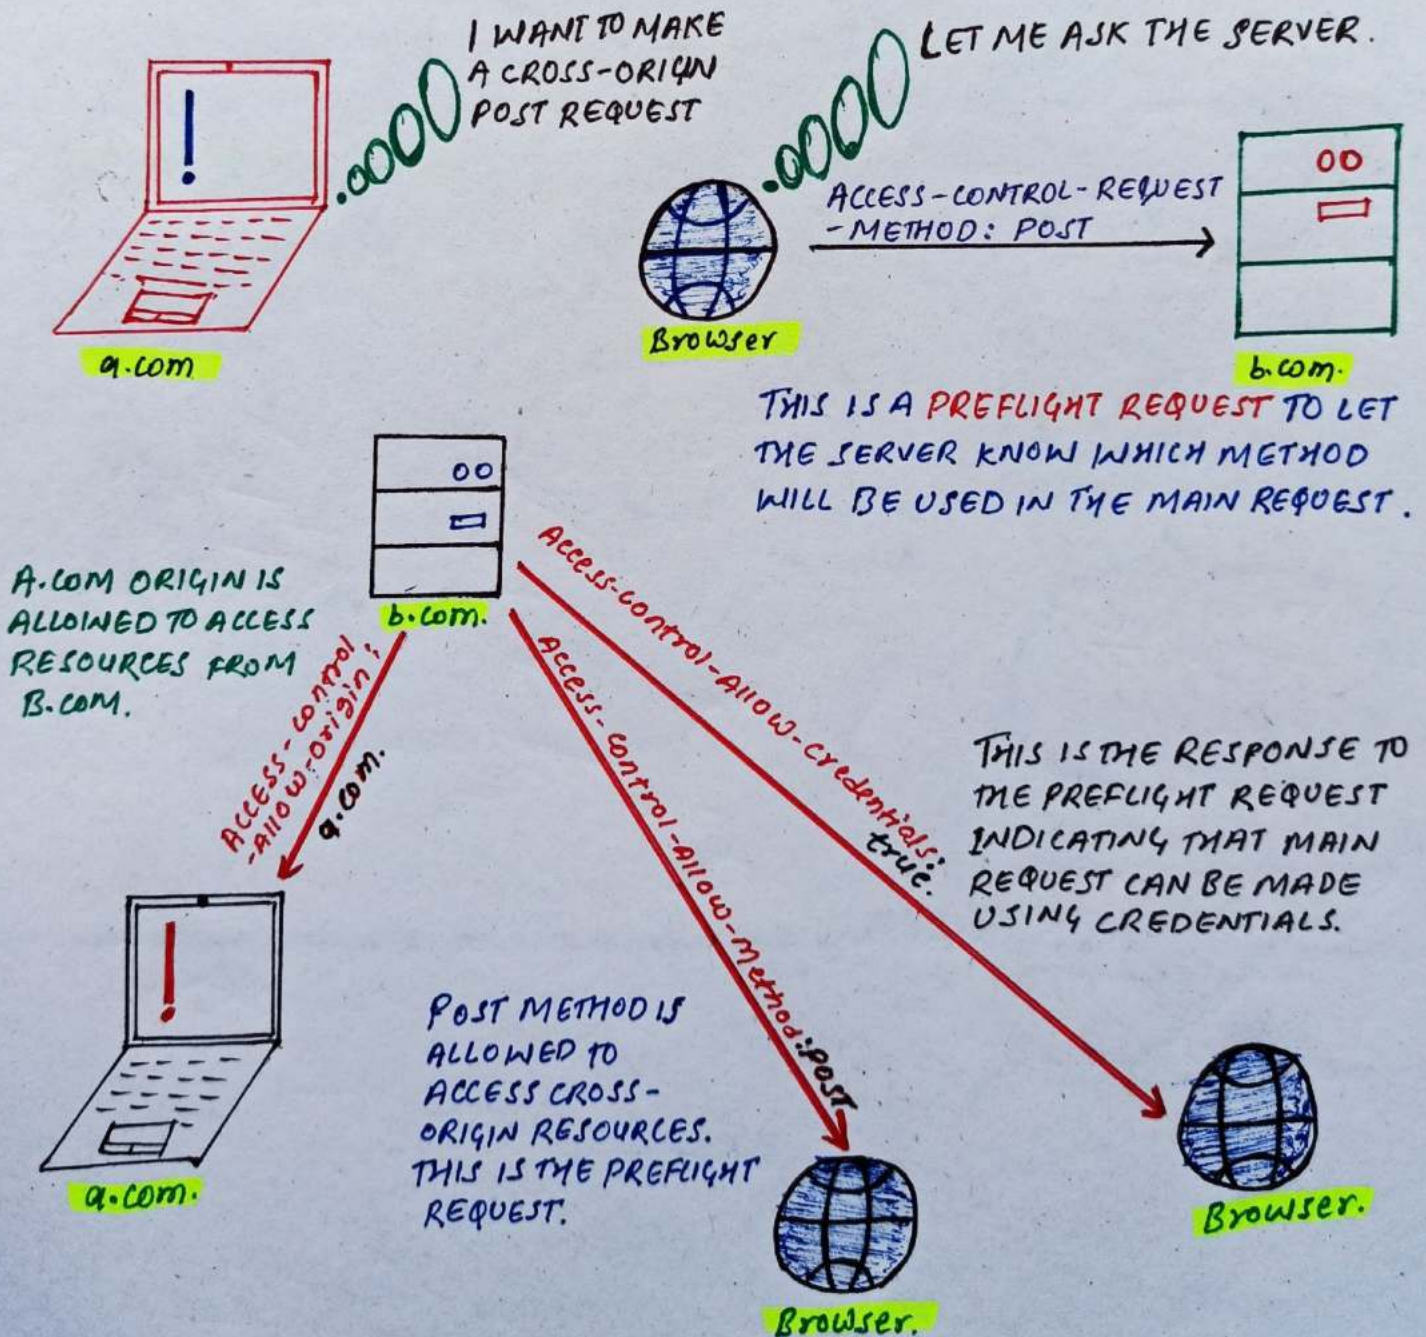 I WANT TO MAKE
A CROSS-ORIGIN
POST REQUEST
LET ME ASK THE SERVER.
ACCESS-CONTROL-REQUEST
-METHOD: POST
a.com
Browser
b.com.
THIS IS A PREFLIGHT REQUEST TO LET
THE SERVER KNOW WHICH METHOD
WILL BE USED IN THE MAIN REQUEST.
b.com.
A.COM ORIGIN IS
ALLOWED TO ACCESS
RESOURCES FROM
B.COM.
Access-control
-Allow-origin:
a.com.
Access-control-Allow-Method:POST
Access-control-Allow-credentials:
true.
THIS IS THE RESPONSE TO
THE PREFLIGHT REQUEST
INDICATING THAT MAIN
REQUEST CAN BE MADE
USING CREDENTIALS.
a.com.
POST METHOD IS
ALLOWED TO
ACCESS CROSS-
ORIGIN RESOURCES.
THIS IS THE PREFLIGHT
REQUEST.
Browser.
Browser.